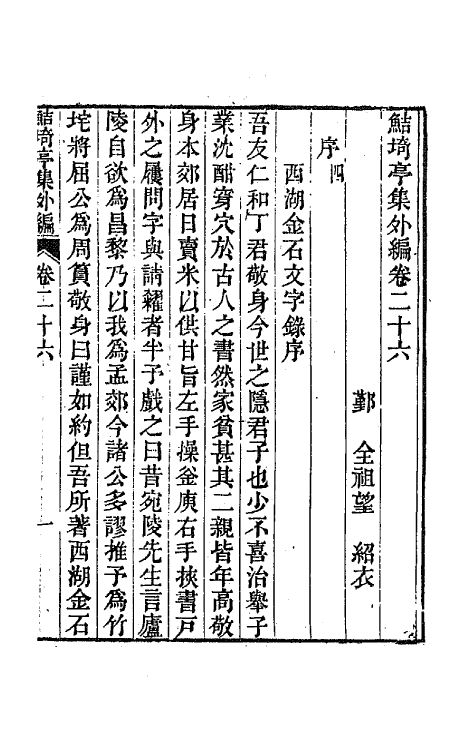 鮚埼亭集外編卷二十六
鄞　全祖望　紹衣
序四
西湖金石文字錄序
吾友仁和丁君敬身今世之隱君子也少不喜治舉子
業沈酣穿穴於古人之書然家貧甚其二親皆年高敬
身本郊居日賣米以供甘旨左手操釜庾右手挾書戸
外之屨問字與請糴者半予戲之曰昔宛陵先生言廬
陵自欲爲昌黎乃以我爲孟郊今諸公多謬推予爲竹
垞將屈公爲周篔敬身曰謹如約但吾所著西湖金石
鮚埼亭集外編　卷二十六　一